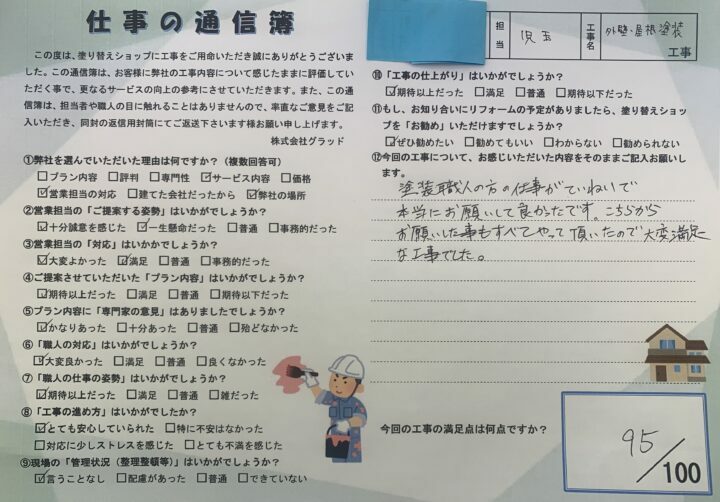 仕事の通信簿
この度は、塗り替えショップに工事をご用命いただき誠にありがとうございました。この通信簿は、お客様に弊社の工事内容について感じたままに評価していただく事で、更なるサービスの向上の参考にさせていただきます。また、この通信簿は、担当者や職人の目に触れることはありませんので、率直なご意見をご記入いただき、同封の返信用封筒にてご返送下さいます様お願い申し上げます。
株式会社グラッド
①弊社を選んでいただいた理由は何ですか?(複数回答可)
□プラン内容 □評判 □専門性 ☑サービス内容 □価格
☑営業担当の対応 □建てた会社だったから ☑弊社の場所
②営業担当の「ご提案する姿勢」はいかがでしょうか?
☑十分誠意を感じた ☑一生懸命だった □普通 □事務的だった
③営業担当の「対応」はいかかでしょうか?
☑大変よかった ☑満足 □普通 □事務的だった
④ご提案させていただいた「プラン内容」はいかがでしょうか?
☑期待以上だった □満足 □普通 □期待以下だった
⑤プラン内容に「専門家の意見」はありましたでしょうか?
☑かなりあった □十分あった □普通 □殆どなかった
⑥「職人の対応」はいかがでしょうか?
☑大変良かった □満足 □普通 □良くなかった
⑦「職人の仕事の姿勢」はいかがでしょうか?
☑期待以上だった □満足 □普通 □雑だった
⑧「工事の進め方」はいかがでしたか?
☑とても安心していられた □特に不安はなかった
□対応に少しストレスを感じた □とても不満を感じた
⑨現場の「管理状況(整理整頓等)」はいかがでしょうか?
☑言うことなし □配慮があった □普通 □できていない
担当 児玉 工事名 外壁・屋根塗装 工事
⑩「工事の仕上がり」はいかがでしょうか?
☑期待以上だった □満足 □普通 □期待以下だった
⑪もし、お知り合いにリフォームの予定がありましたら、塗り替えショップを「お勧め」いただけますでしょうか?
☑ぜひ勧めたい □勧めてもいい □わからない □勧められない
⑫今回の工事について、お感じいただいた内容をそのままご記入お願いします。
塗装職人の方の仕事がていねいで
本当にお願いして良かったです。こちらから
お願いした事もすべてやって頂いたので大変満足
な工事でした。
今回の工事の満足点は何点ですか?
95/100